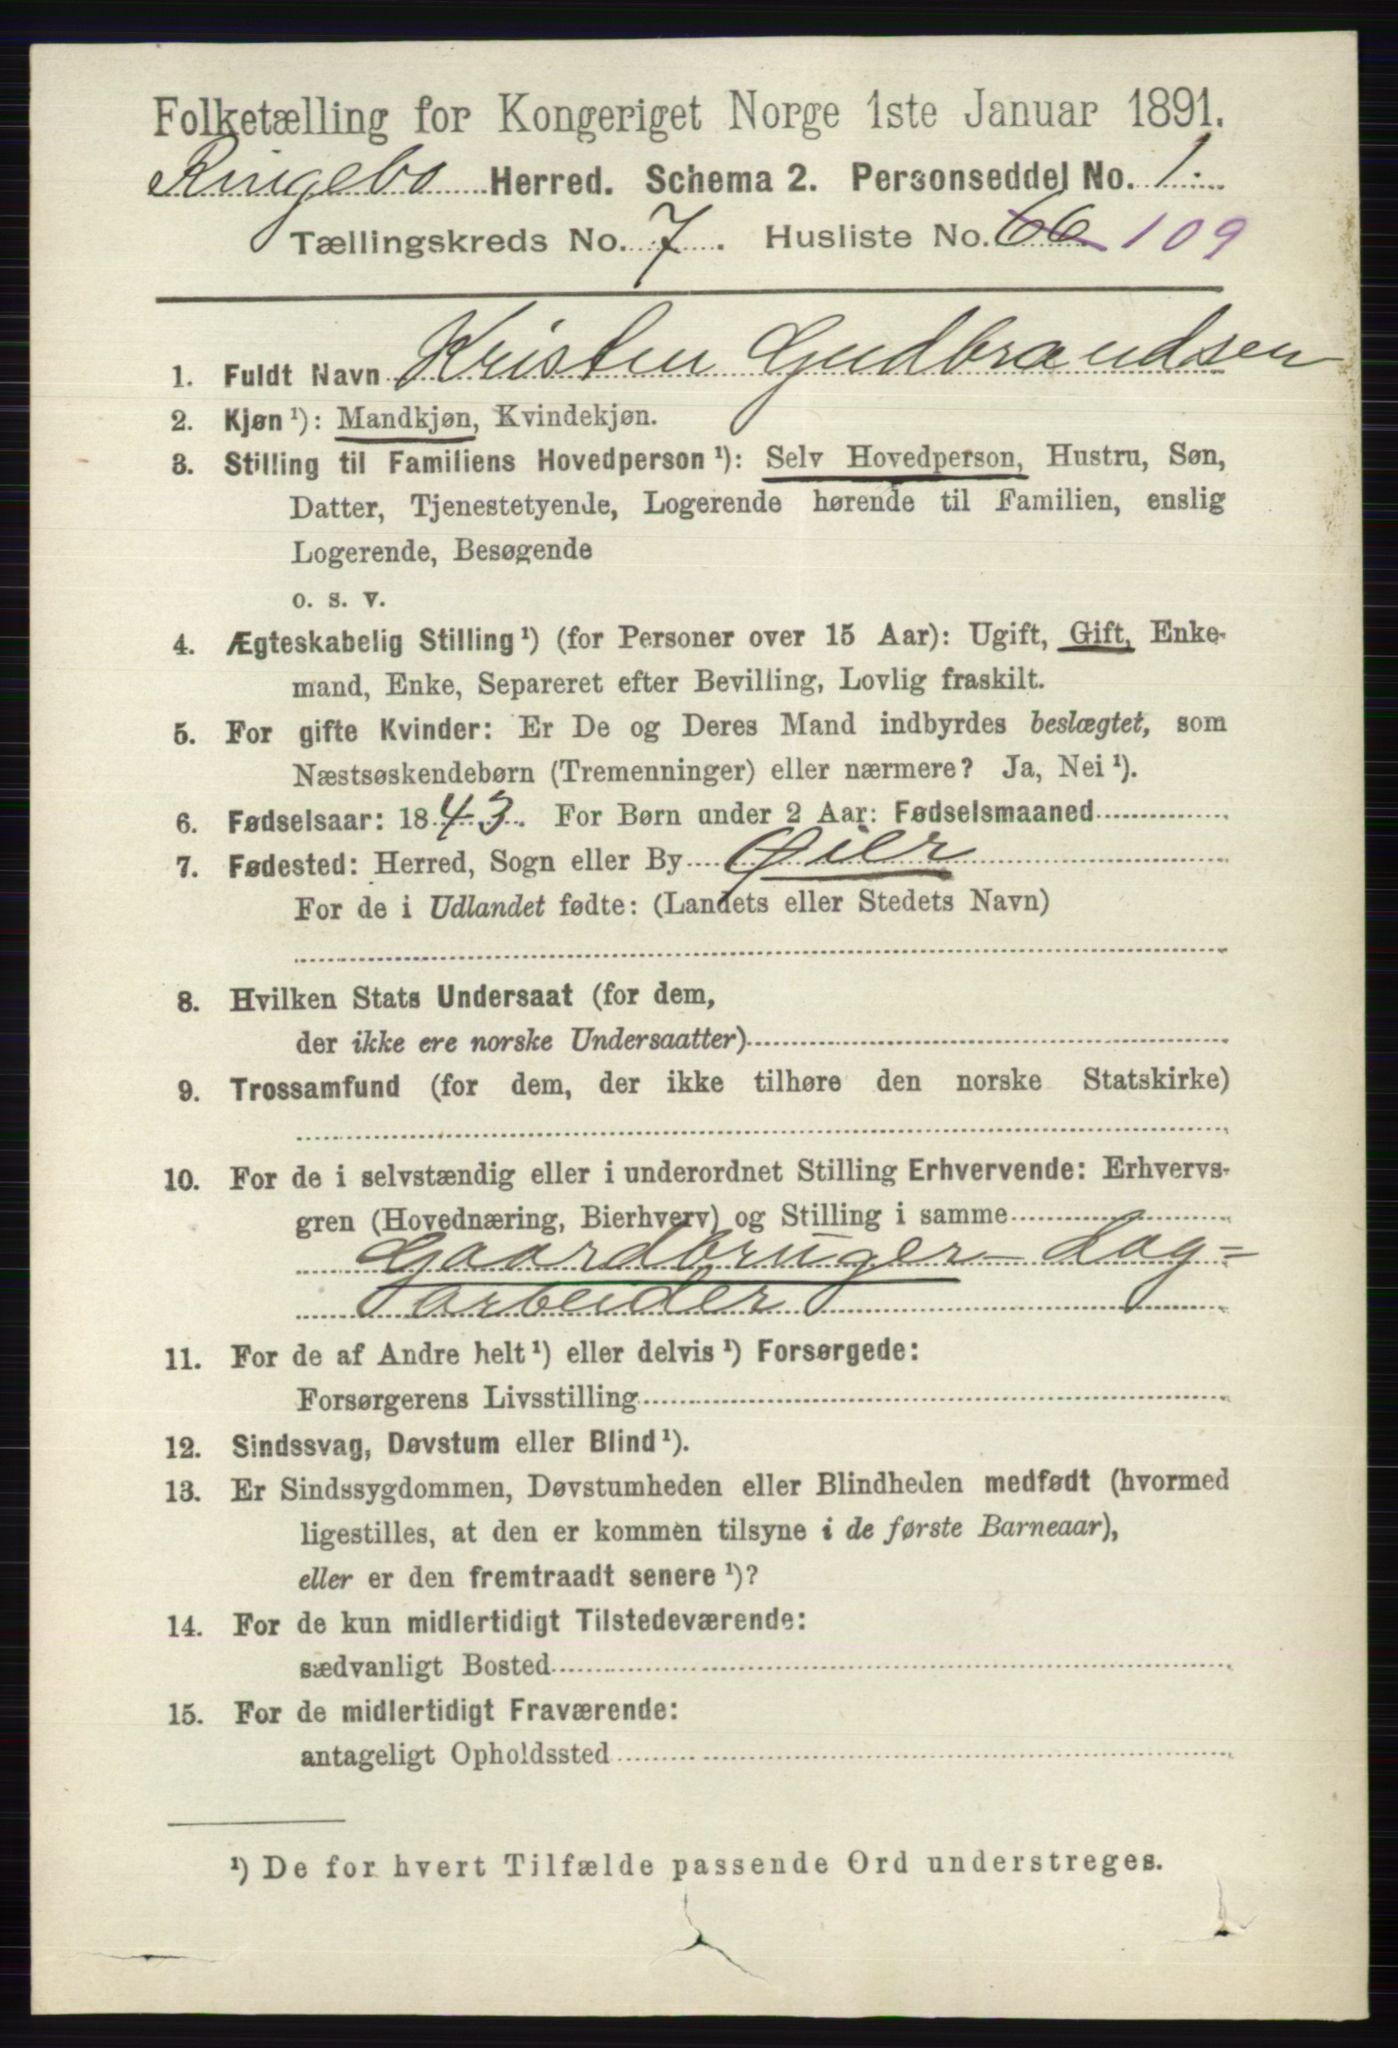 Folketælling for Kongeriget Norge 1ste Januar 1891.
Ringebo Herred. Schema 2. Personseddel No. 1.
Tællingskreds No. 7. Husliste No. 66 109
1. Fuldt Navn Kristen Gudbrandsen
2. Kjøn ¹): Mandkjøn, Kvindekjøn.
3. Stilling til Familiens Hovedperson ¹): Selv Hovedperson, Hustru, Søn,
Datter, Tjenestetyende, Logerende hørende til Familien, enslig
Logerende, Besøgende
o. s. v.
4. Ægteskabelig Stilling ¹) (for Personer over 15 Aar): Ugift, Gift, Enke-
mand, Enke, Separeret efter Bevilling, Lovlig fraskilt.
5. For gifte Kvinder: Er De og Deres Mand indbyrdes beslægtet, som
Næstsøskendebørn (Tremenninger) eller nærmere? Ja, Nei ¹).
6. Fødselsaar: 1843. For Børn under 2 Aar: Fødselsmaaned
7. Fødested: Herred, Sogn eller By Øier
For de i Udlandet fødte: (Landets eller Stedets Navn)
8. Hvilken Stats Undersaat (for dem,
der ikke ere norske Undersaatter)
9. Trossamfund (for dem, der ikke tilhøre den norske Statskirke)
10. For de i selvstændig eller i underordnet Stilling Erhvervende: Erhvervs-
gren (Hovednæring, Bierhverv) og Stilling i samme
Gaardbruger - Dag-
arbeider
11. For de af Andre helt ¹) eller delvis ¹) Forsørgede:
Forsørgerens Livsstilling
12. Sindssvag, Døvstum eller Blind ¹).
13. Er Sindssygdommen, Døvstumheden eller Blindheden medfødt (hvormed
ligestilles, at den er kommen tilsyne i de første Barneaar),
eller er den fremtraadt senere ¹)?
14. For de kun midlertidigt Tilstedeværende:
sædvanligt Bosted
15. For de midlertidigt Fraværende:
antageligt Opholdssted
¹) De for hvert Tilfælde passende Ord understreges.